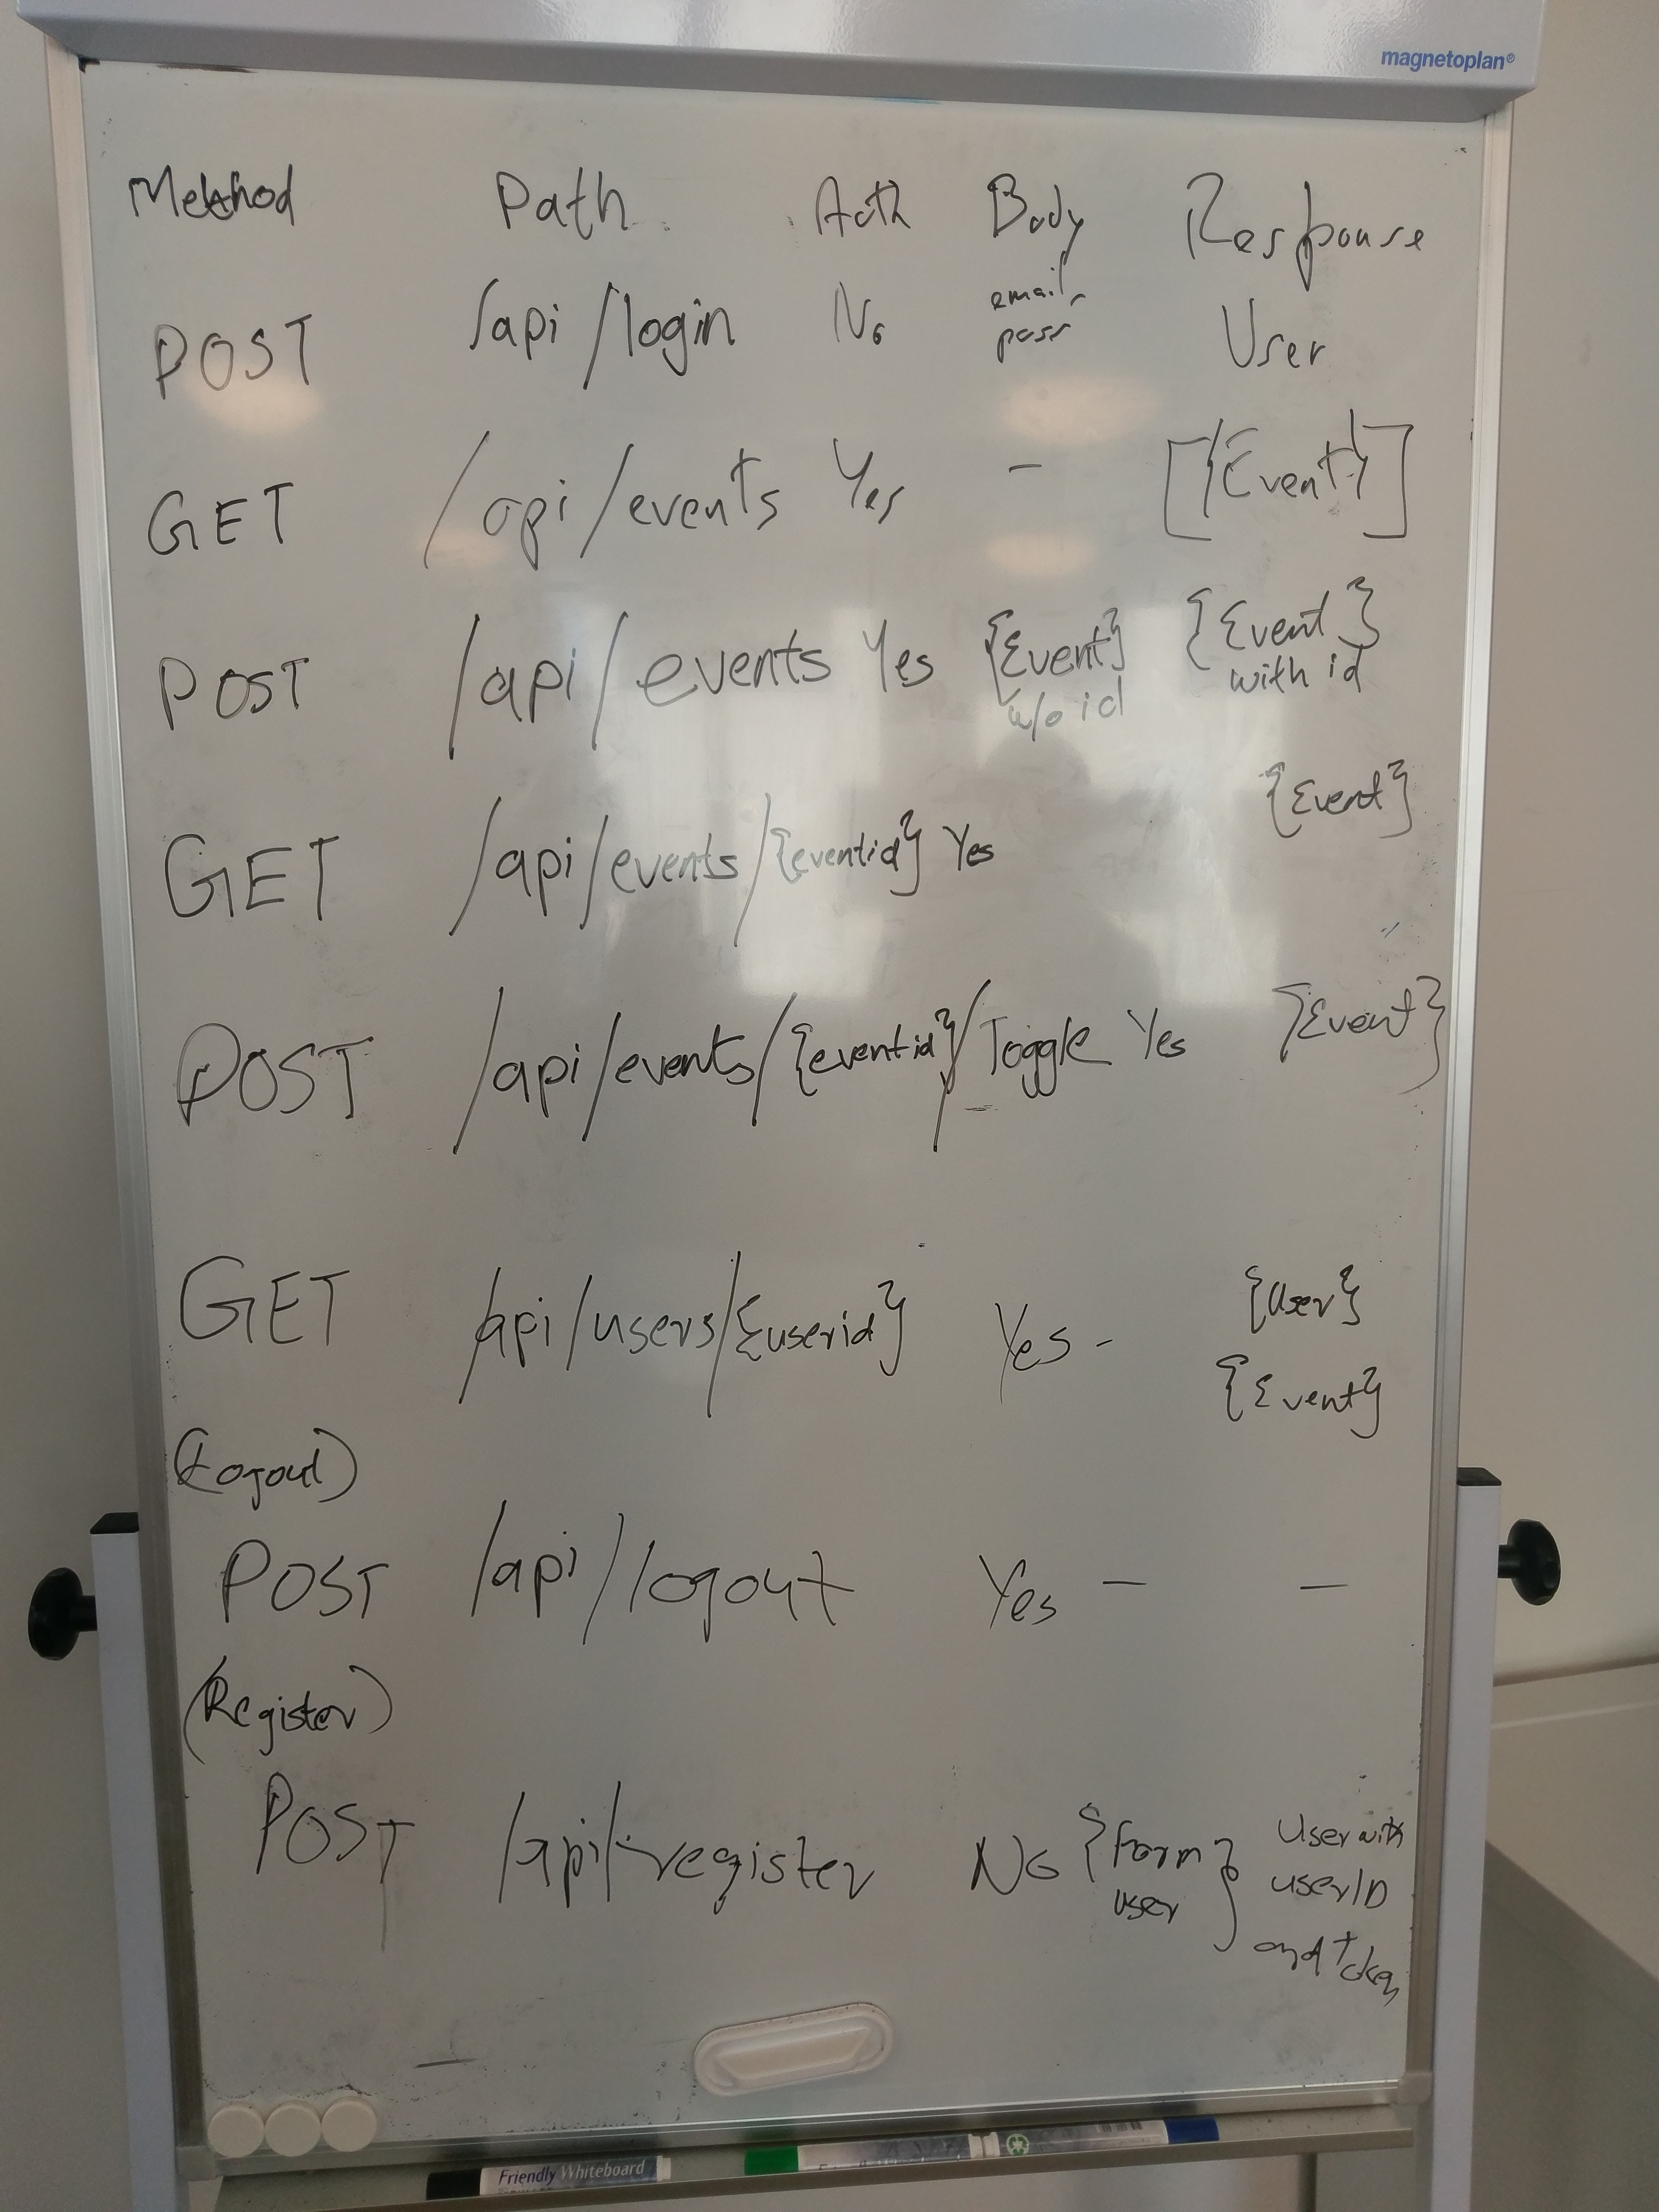 magnetoplan®
Method Path Auth Body Response
POST /api/login No email, pass User
GET /api/events Yes - [{Event}]
POST /api/events Yes {Event} w/o id {Event} with id
GET /api/events/{eventid} Yes {Event}
POST /api/events/{eventid}/Toggle Yes {Event}
GET /api/users/{userid} Yes - {User}
{Event}
(Logout)
POST /api/logout Yes - -
(Register)
POST /api/register No {Form user} User with userID and token
Friendly Whiteboard